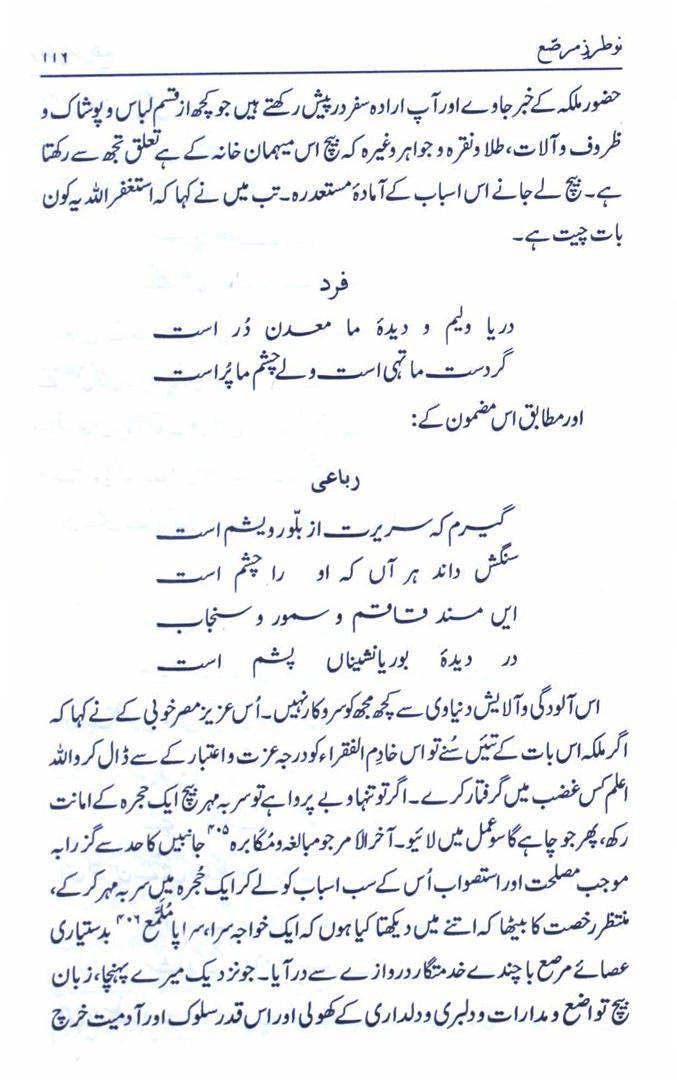 نوطرزِ مرصّع
۱۱۶
حضور ملکہ کے خبر جاوے اور آپ ارادہ سفر در پیش رکھتے ہیں جو کچھ از قسم لباس و پوشاک و
ظروف و آلات، طلا و نقرہ و جواہر وغیرہ کہ بیچ اس میہمان خانہ کے ہے تعلق تجھ سے رکھتا
ہے۔ بیچ لے جانے اس اسباب کے آمادۂ مستعد رہ۔ تب میں نے کہا کہ استغفر اللہ یہ کون
بات چیت ہے۔
فرد
دریا ولیم و دیدۂ ما معدن دُر است
گردست ما تہی است ولے چشم ما پُراست
اور مطابق اس مضمون کے:
رباعی
گیرم کہ سریرت از بلّور ویشم است
سنگش داند ہر آں کہ او را چشم است
ایں مسند قاقم و سمور و سنجاب
در دیدۂ بوریا نشیناں پشم است
اس آلودگی و آلایش دنیاوی سے کچھ مجھ کو سروکار نہیں۔ اُس عزیز مصر خوبی کے نے کہا کہ
اگر ملکہ اس بات کے تئیں سُنے تو اس خادم الفقراء کو درجہ عزت و اعتبار کے سے ڈال کر واللہ
اعلم کس غضب میں گرفتار کرے۔ اگر تو تنہا و بے پروا ہے تو سر بہ مہر بیچ ایک حجرہ کے امانت
رکھ، پھر جو چاہے گا سو عمل میں لائیو۔ آخر الامر جو مبالغہ و مُکابرہ ۴۰۵ جانبین کا حد سے گزرا بہ
موجب مصلحت اور استصواب اُس کے سب اسباب کو لے کر ایک حُجرہ میں سر بہ مہر کر کے،
منتظر رخصت کا بیٹھا کہ اتنے میں دیکھتا کیا ہوں کہ ایک خواجہ سرا، سراپا مُلمَّع ۴۰۶ بدستیاری
عصائے مرصع با چندے خدمتگار دروازے سے در آیا۔ جو نزدیک میرے پہنچا، زبان
بیچ تواضع و مدارات و دلبری و دلداری کے کھولی اور اس قدر سلوک اور آدمیت خرچ